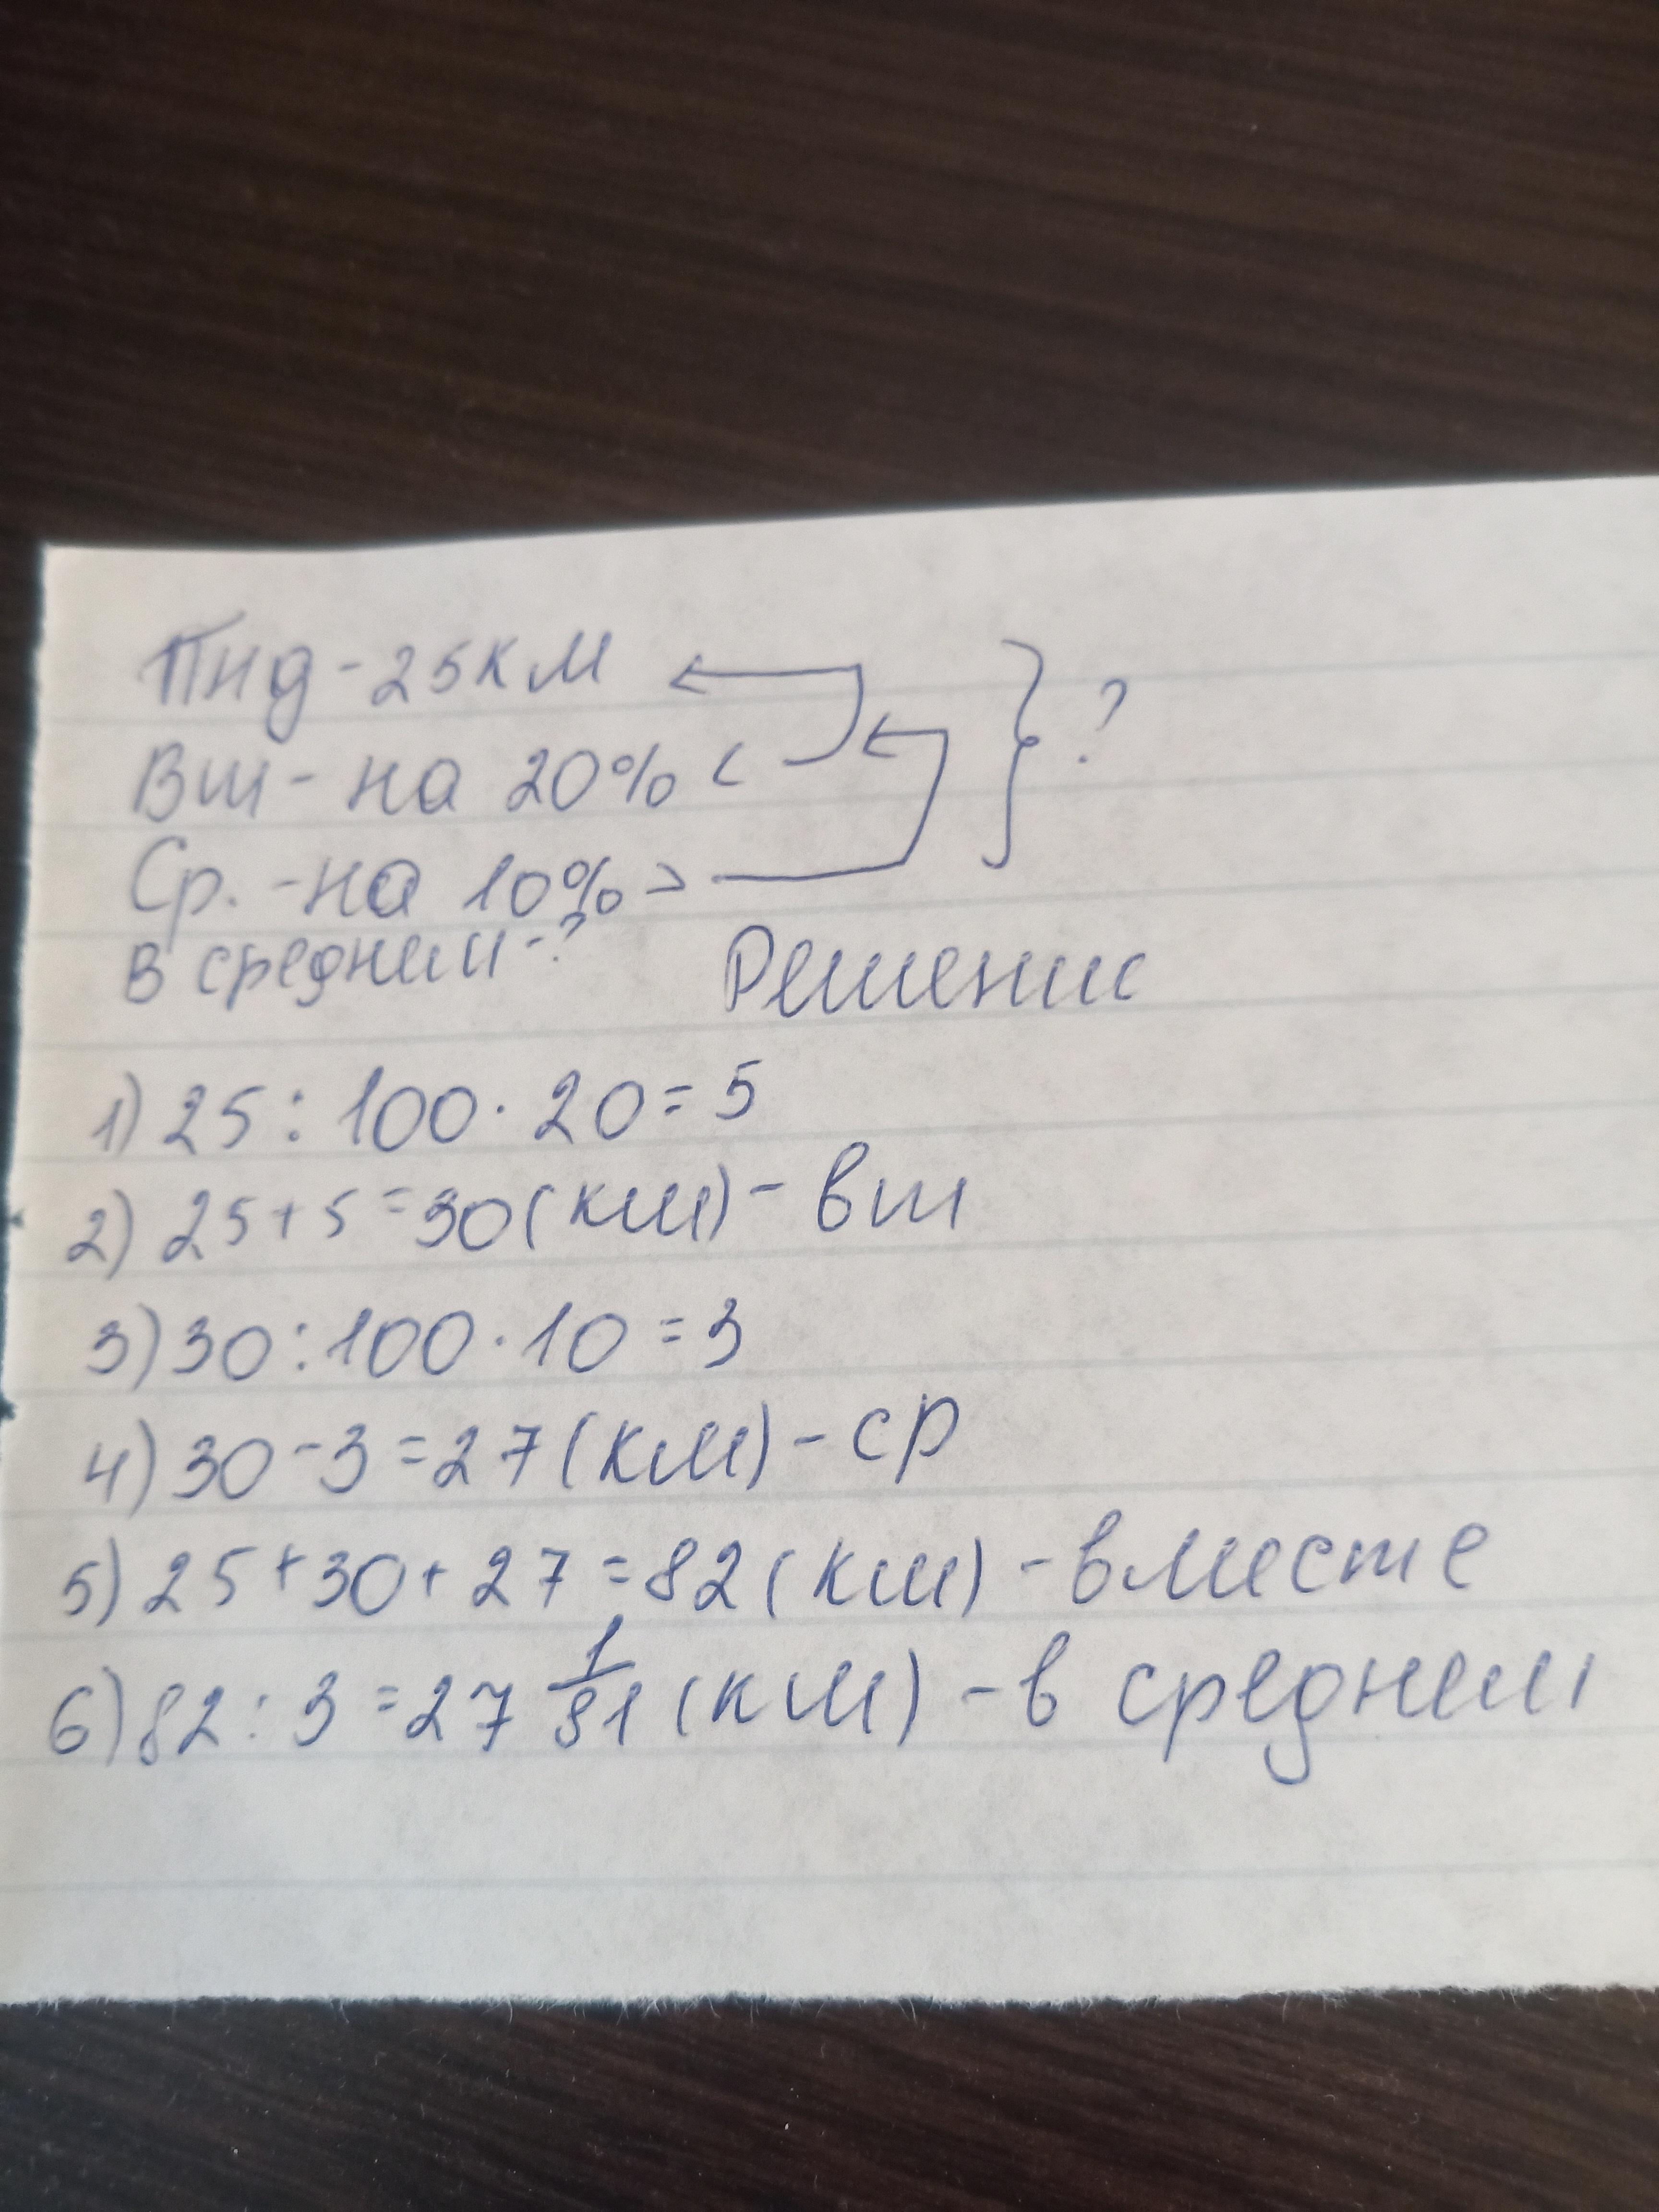 Пнд - 25 км
Вт - на 20% <
Ср. - на 10% >
} ?
В среднем - ?
Решение
1) 25 : 100 · 20 = 5
2) 25 + 5 = 30 (км) - вт
3) 30 : 100 · 10 = 3
4) 30 - 3 = 27 (км) - ср
5) 25 + 30 + 27 = 82 (км) - вместе
6) 82 : 3 = 27 1/31 (км) - в среднем